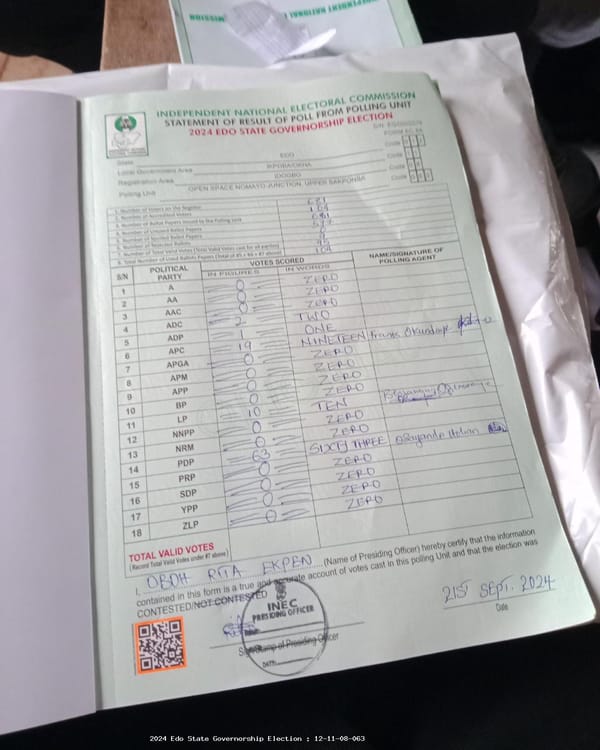 INDEPENDENT NATIONAL ELECTORAL COMMISSION
STATEMENT OF RESULT OF POLL FROM POLLING UNIT
2024 EDO STATE GOVERNORSHIP ELECTION
State EDO Code
Local Government Area IKPOBA/OKHA Code
Registration Area IDOGBO Code
Polling Unit OPEN SPACE NOMAYO JUNCTION, UPPER SAKPONBA Code
1. Number of Voters on the Register
2. Number of Accredited Voters
3. Number of Ballot Papers Issued to the Polling Unit
4. Number of Unused Ballot Papers
5. Number of Spoiled Ballot Papers
6. Number of Rejected Ballots
7. Number of Total Valid Votes (Total Valid Votes cast for all parties)
8. Total Number of Used Ballots Papers (Total of #5 + #6 + #7 above)
S/N POLITICAL PARTY VOTES SCORED NAME/SIGNATURE OF POLLING AGENT
IN FIGURES IN WORDS
1 A 0 ZERO
2 AA 0 ZERO
3 AAC 0 ZERO
4 ADC 2 TWO
5 ADP 1 ONE
6 APC 19 NINETEEN
7 APGA 0 ZERO
8 APM 0 ZERO
9 APP 0 ZERO
10 BP 0 ZERO
11 LP 10 TEN
12 NNPP 0 ZERO
13 NRM 0 ZERO
14 PDP 63 SIXTY THREE
15 PRP 0 ZERO
16 SDP 0 ZERO
17 YPP 0 ZERO
18 ZLP 0 ZERO
TOTAL VALID VOTES
(Record Total Valid Votes under #7 above)
I, OBOH RITA EKPEN (Name of Presiding Officer) hereby certify that the information
contained in this form is a true and accurate account of votes cast in this Polling Unit and that the election was
CONTESTED/NOT CONTESTED
INEC
PRESIDING OFFICER
DATE:
Sign/Stamp of Presiding Officer
21ST SEPT. 2024
Date
2024 Edo State Governorship Election : 12-11-08-063